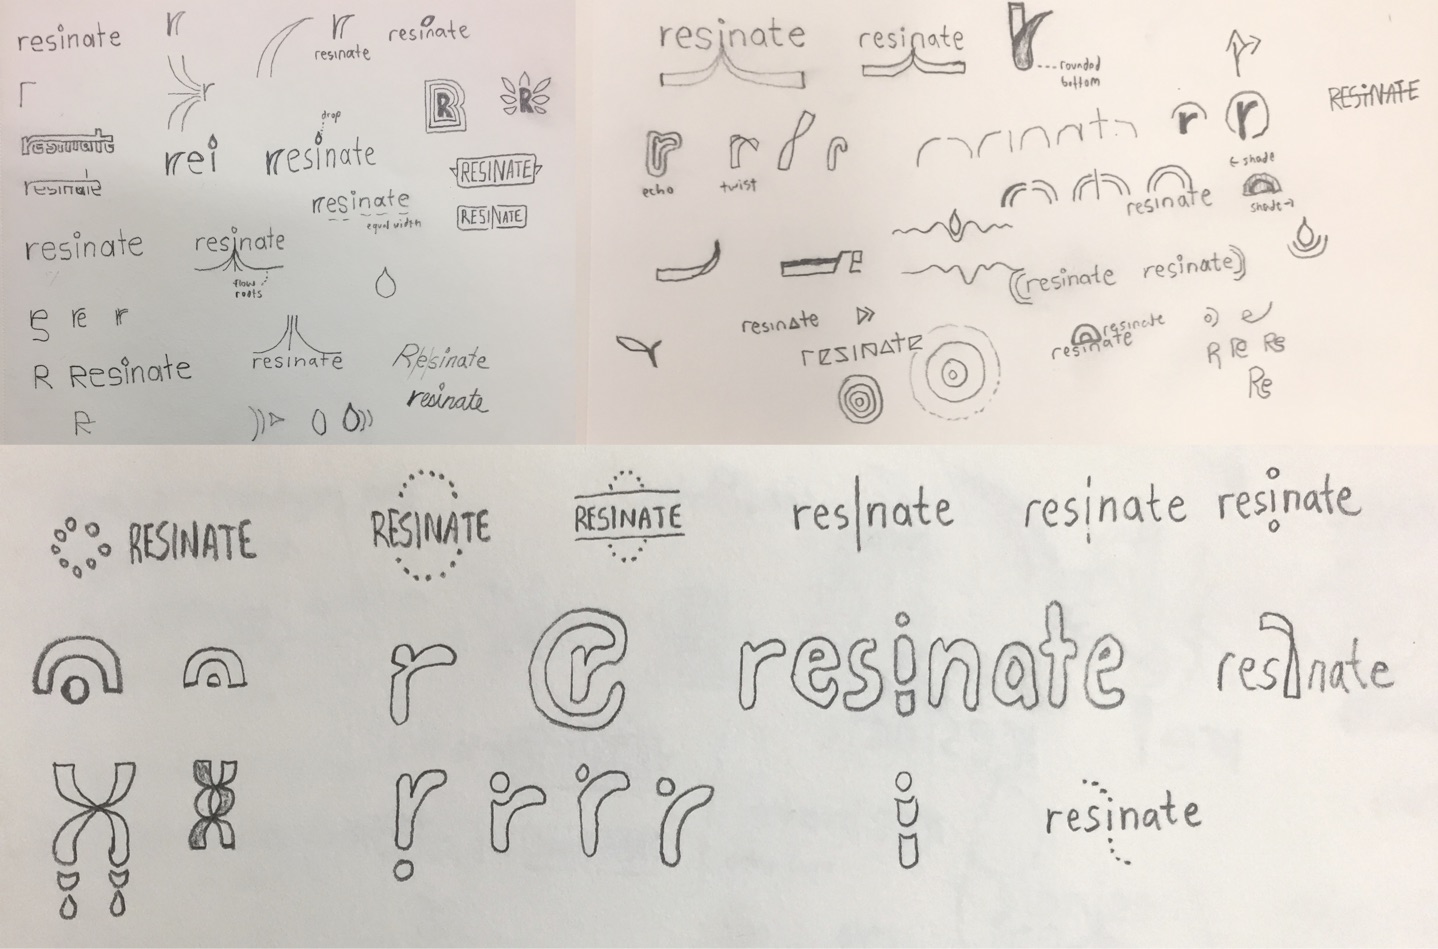 resinate
r
r
resinate
resinate
r
r
R
R
resinate
rei
drop
resinate
RESINATE
resinate
resinate
equal width
RESINATE
resinate
resinate
flow
roots
re
re
r
R
Resinate
resinate
Resinate
resinate
R
resinate
resinate
r
rounded
bottom
RESINATE
r
echo
r
r
twist
r
rinat
r
r
shade
resinate
shade
re
resinate
resinate
resinate
RESINATE
resinate
resinate
e
R
Re
Re
Re
RESINATE
RESINATE
RESINATE
resinate
resinate
resinate
r
r
resinate
resinate
r
r
r
r
i
resinate